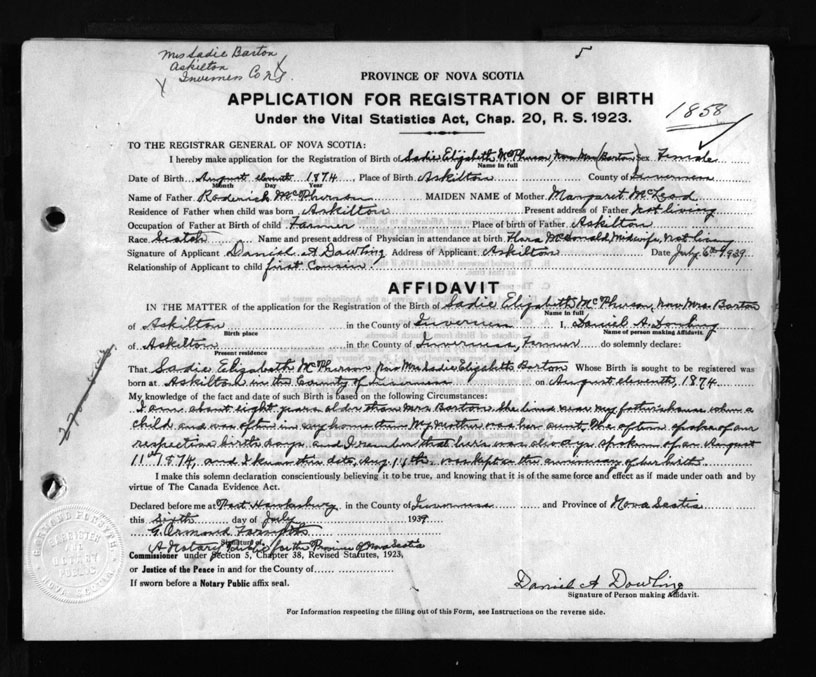 Mrs Sadie Barton
Askilton
Inverness Co N.S.
5
PROVINCE OF NOVA SCOTIA
APPLICATION FOR REGISTRATION OF BIRTH
Under the Vital Statistics Act, Chap. 20, R. S. 1923.
1858
TO THE REGISTRAR GENERAL OF NOVA SCOTIA:
I hereby make application for the Registration of Birth of Sadie Elizabeth McPherson, Now Mrs (Barton) Sex Female
Name in full
Date of Birth August eleventh 1874 Place of Birth Askilton County of Inverness
Month Day Year
Name of Father Roderick McPherson MAIDEN NAME of Mother Margaret McLeod
Residence of Father when child was born Askilton Present address of Father not living
Occupation of Father at Birth of child Farmer Place of birth of Father Askilton
Race Scotch Name and present address of Physician in attendance at birth Flora McDonald, Midwife, Not living
Signature of Applicant Daniel A Dowling Address of Applicant Askilton Date July 6th 1939
Relationship of Applicant to child first Cousin.
AFFIDAVIT
IN THE MATTER of the application for Registration of the Birth of Sadie Elizabeth McPherson, now Mrs. Barton
Name in full
of Askilton in the County of Inverness I, Daniel A. Dowling
Birth place Name of person making Affidavit.
of Askilton in the County of Inverness, Farmer do solemnly declare:
Present residence
That Sadie Elizabeth McPherson Now Mrs Sadie Elizabeth Barton Whose Birth is sought to be registered was
born at Askilton in the County of Inverness on August eleventh, 1874.
My knowledge of the fact and date of such Birth is based on the following Circumstances:
I am about eight years older than Mrs Barton. She lived near my father's house when a
child and was often in my home then. My mother was her aunt. We often spoke of our
respective birthdays and I remember that hers was always spoken of as August
11th 1874, and I know this date, Aug. 11th. was kept as the anniversary of her birth.
I make this solemn declaration conscientiously believing it to be true, and knowing that it is of the same force and effect as if made under oath and by
virtue of The Canada Evidence Act.
Declared before me at Port Hawkesbury in the County of Inverness and Province of Nova Scotia
this sixth day of July 1939
G. Ormond Forsyth
Signature of
A Notary Public for the Province of Nova Scotia
Commissioner under Section 5, Chapter 38, Revised Statutes, 1923,
or Justice of the Peace in and for the County of
If sworn before a Notary Public affix seal.
Daniel A Dowling
Signature of Person making Affidavit.
For Information respecting the filling out of this Form, see Instructions on the reverse side.